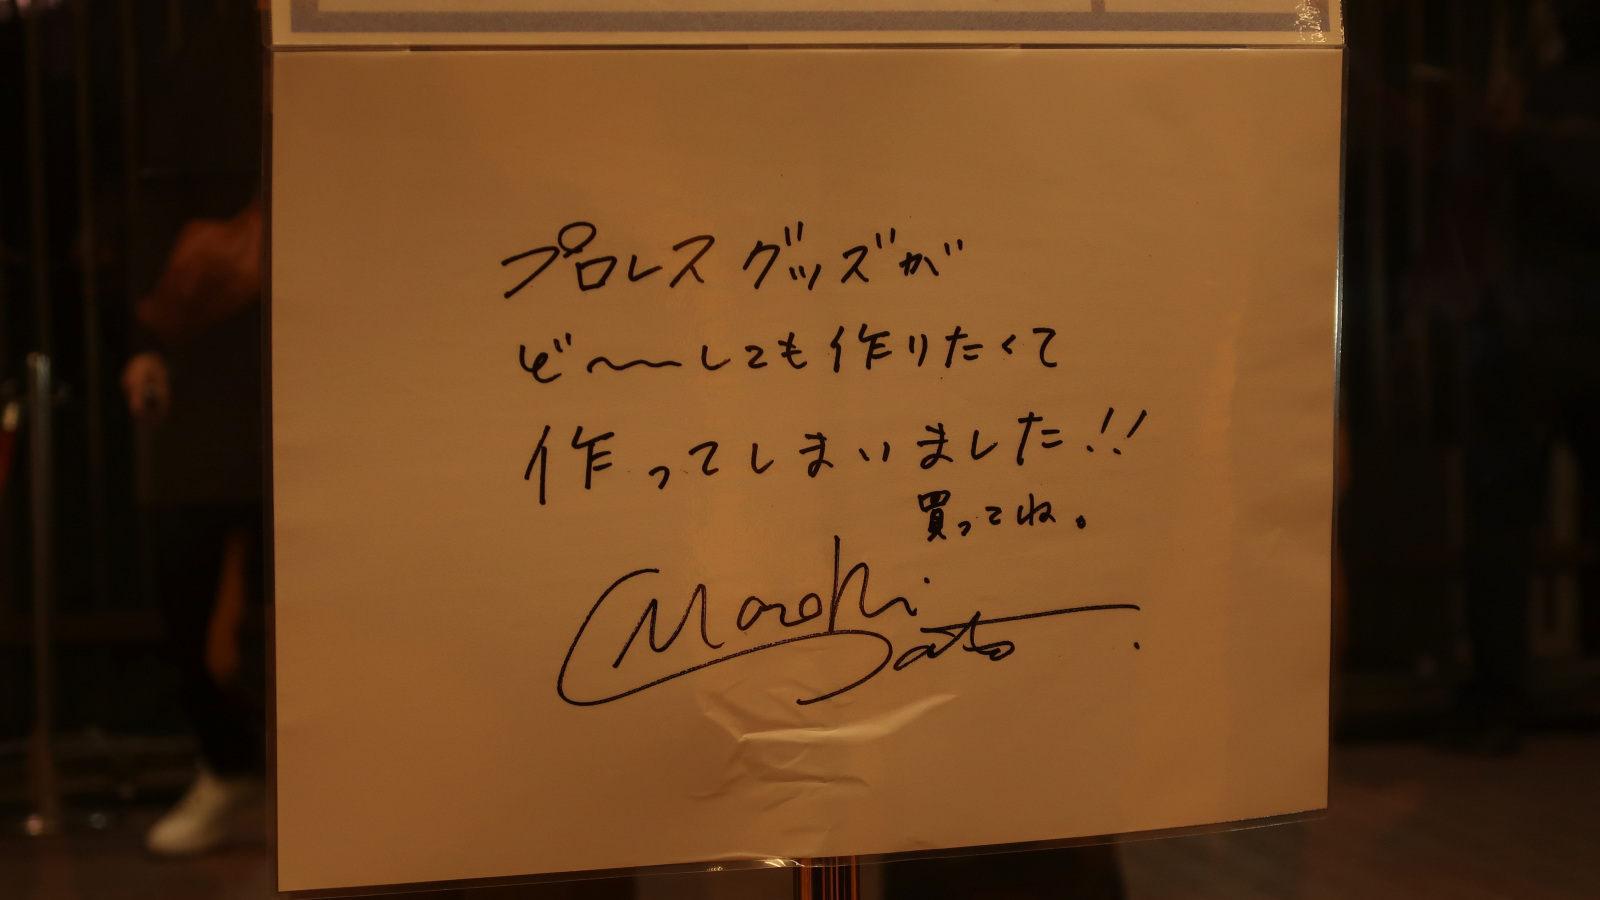 プロレスグッズが
ど〜〜しても作りたくて
作ってしまいました!!
買ってね。
Masaki
Sato.